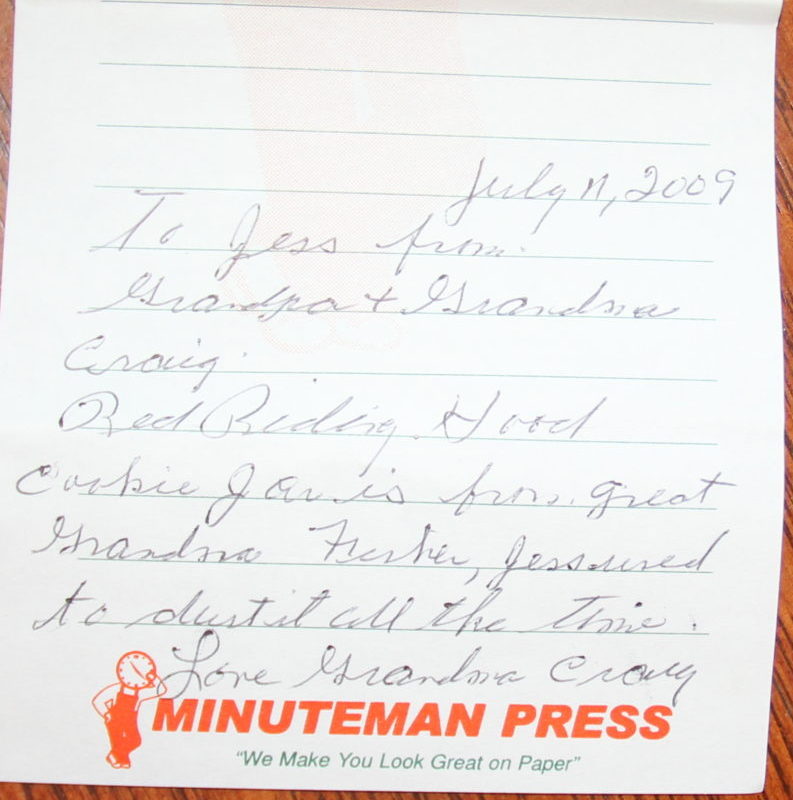 July 11, 2009
To Jess from
Grandpa + Grandma
Craig.
Red Riding Hood
Cookie Jar is from great
Grandma, Jess used
to dust it all the time.
Love Grandma Craig
MINUTEMAN PRESS
"We Make You Look Great on Paper"